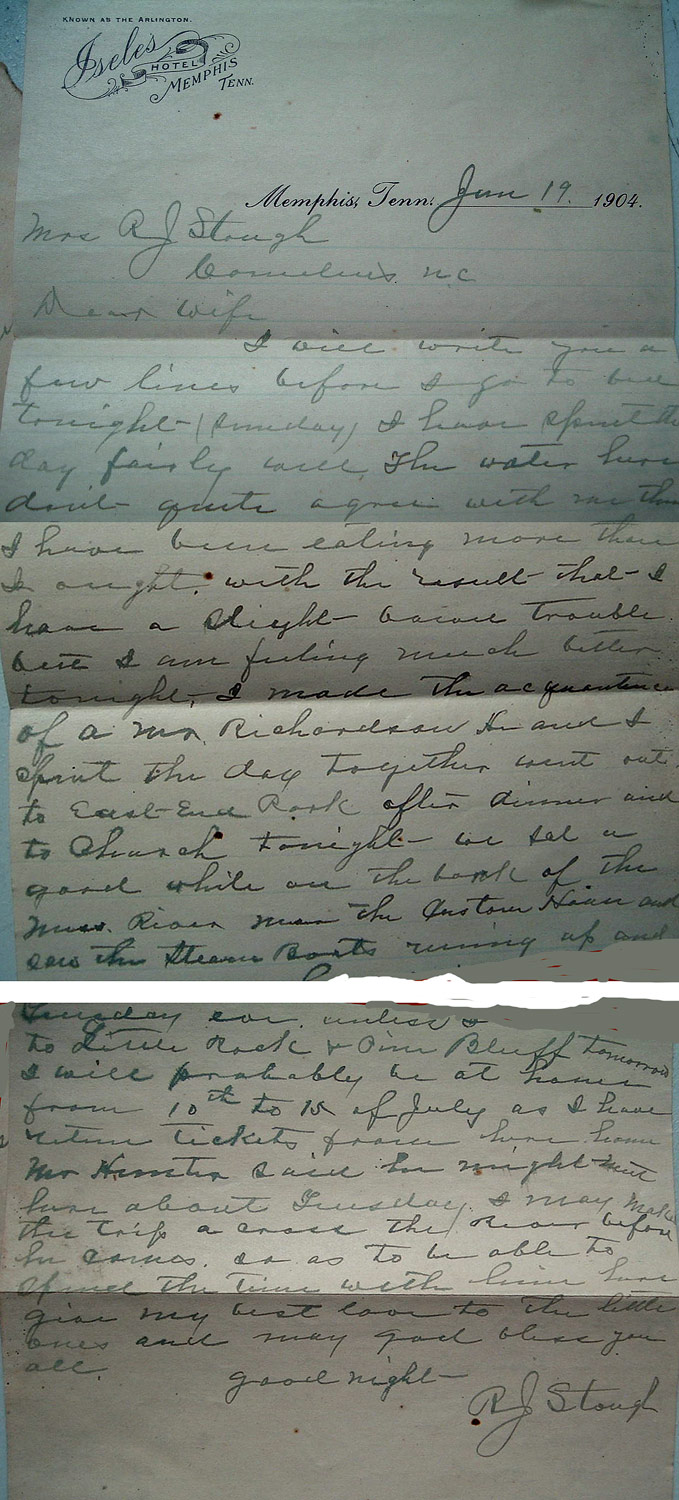 KNOWN AS THE ARLINGTON.
Isele's
HOTEL
MEMPHIS
TENN.
Memphis, Tenn. Jun 19. 1904.
Mrs R J Stough
Cornelius N.C
Dear Wife
I will write you a
few lines before I go to bed
tonight (Sunday) I have spent the
day fairly well, The water here
dont quite agree with me then
I have been eating more than
I ought. with the result that I
have a slight bowel trouble
but I am feeling much better
tonight, I made the acquantence
of a Mr. Richardson He and I
spent the day together went out
to East End Park after dinner and
to Church tonight we sat a
good while on the bank of the
Miss. River near the Custom House and
saw the Steam Boats runing up and
Tuesday eve. unless I
to Little Rock & Pine Bluff tomorrow
I will probably be at home
from 10th to 15 of July as I have
return tickets from here home
Mr Hunter said he might meet
here about Tuesday. I may make
the trip a cross the River before
he comes. so as to be able to
spend the time with him here
give my best love to the little
ones and may god bless you
all. good night
R J Stough